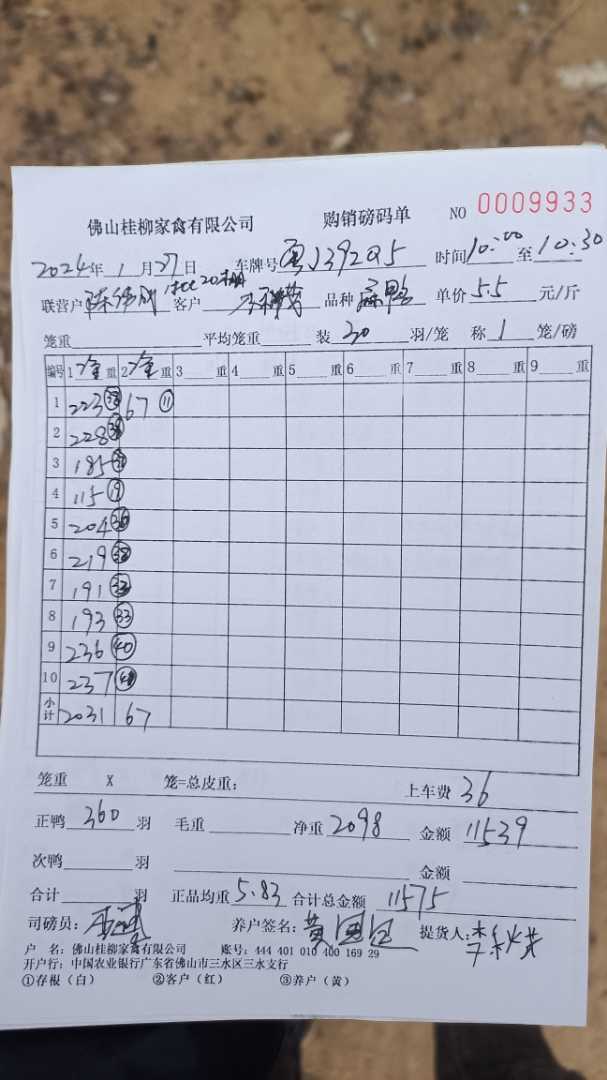 佛山桂柳家禽有限公司 购销磅码单 NO 0009933
2024年 1 月 27 日 车牌号 粤J392Q5 时间 10:00 至 10:30
联营户 客户 品种 扁鸭 单价 5.5 元/斤
笼重 平均笼重 装 30 羽/笼 称 1 笼/磅
编号 1 净重 重 2 净重 重 3 重 4 重 5 重 6 重 7 重 8 重 9 重
1 223 67 ⑪
2 228
3 185
4 115 ⑲
5 204 ㊱
6 219 ㊳
7 191
8 193 ㉝
9 236 ㊵
10 237
小计 2031 67
笼重 X 笼=总皮重: 上车费 36
正鸭 360 羽 毛重 净重 2098 金额 11539
次鸭 羽 金额
合计 羽 正品均重 5.83 合计总金额 11575
司磅员: 养户签名: 黄 提货人: 李
户 名: 佛山桂柳家禽有限公司 账号: 444 401 010 400 169 29
开户行: 中国农业银行广东省佛山市三水区三水支行
①存根（白） ②客户（红） ③养户（黄）